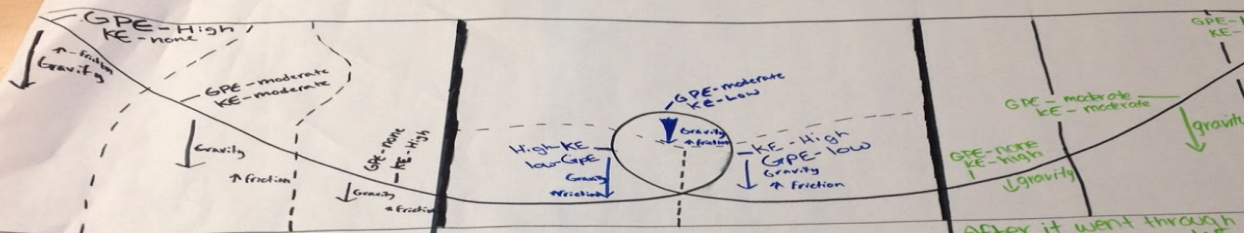 GPE-High
KE-none
↑-friction
Gravity
GPE-moderate
KE-moderate
Gravity
↑ friction
GPE-none
KE-High
Gravity
friction
GPE-moderate
KE-Low
Gravity
↑ friction
High-KE
low-GPE
Gravity
↑friction
KE-High
GPE-low
Gravity
↑ friction
GPE-none
KE-high
gravity
GPE-moderate
KE-moderate
gravity
GPE-
KE-
After it went through